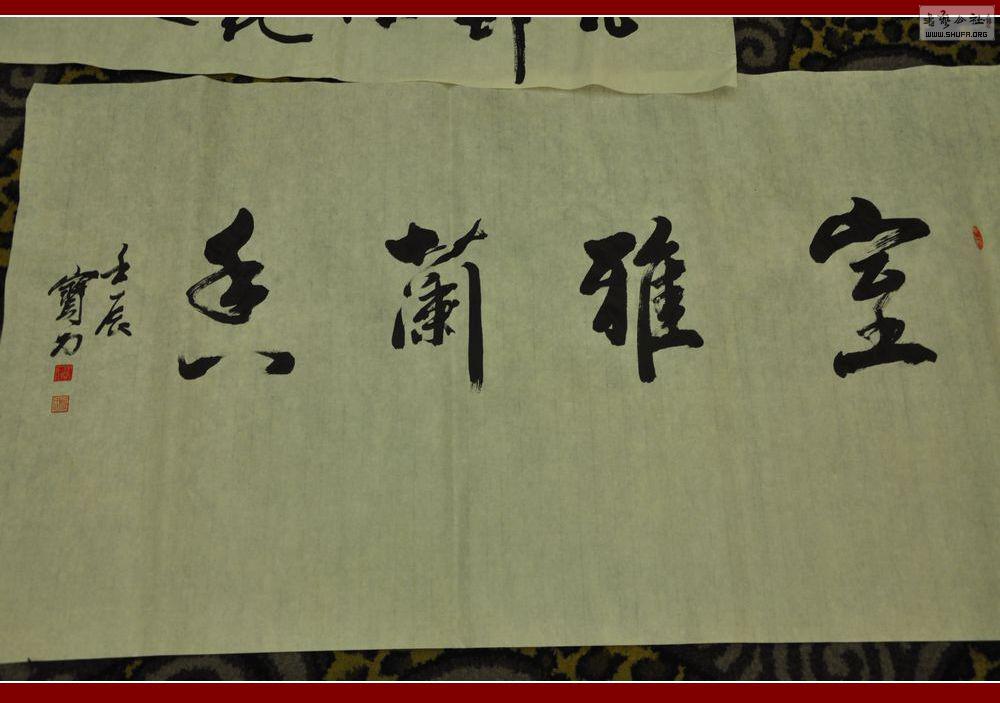 室雅蘭香
壬辰
寶力
書藝公社
WWW.SHUFA.ORG